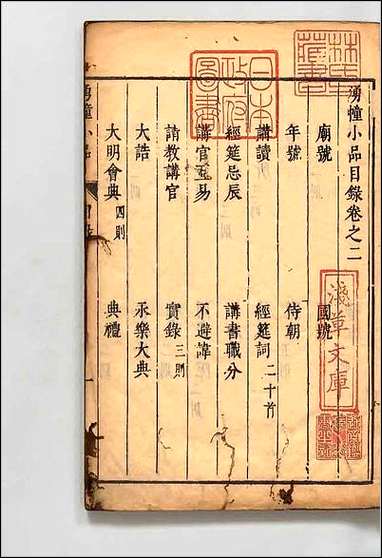 湧幢小品目錄卷之二
廟號 國號
年號 侍朝
講讀 經筵詞 二十首
經筵忌辰 講書職分
講官 易 不避諱
請教講官 實錄 三則
大誥 永樂大典
大明會典 四則 典禮
湧幢小品 目錄 一
林氏藏書
日本政府圖書
淺草文庫